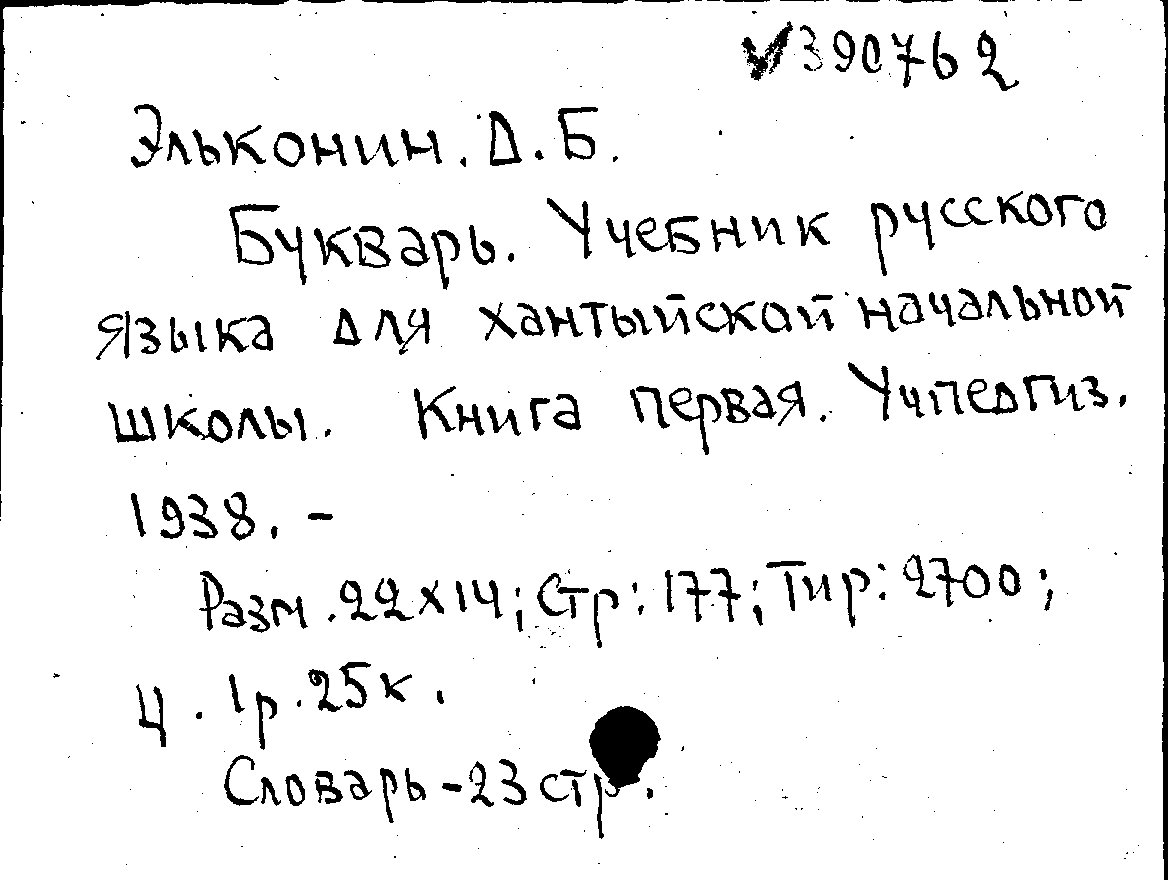 ✓390762
Эльконин. Д. Б.
Букварь. Учебник русского
языка для хантыйской начальной
школы. Книга первая. Учпедгиз.
1938. -
Разм. 22х14; Стр: 177; Тир: 2700;
Ц. 1р. 25к.
Словарь - 23 стр.